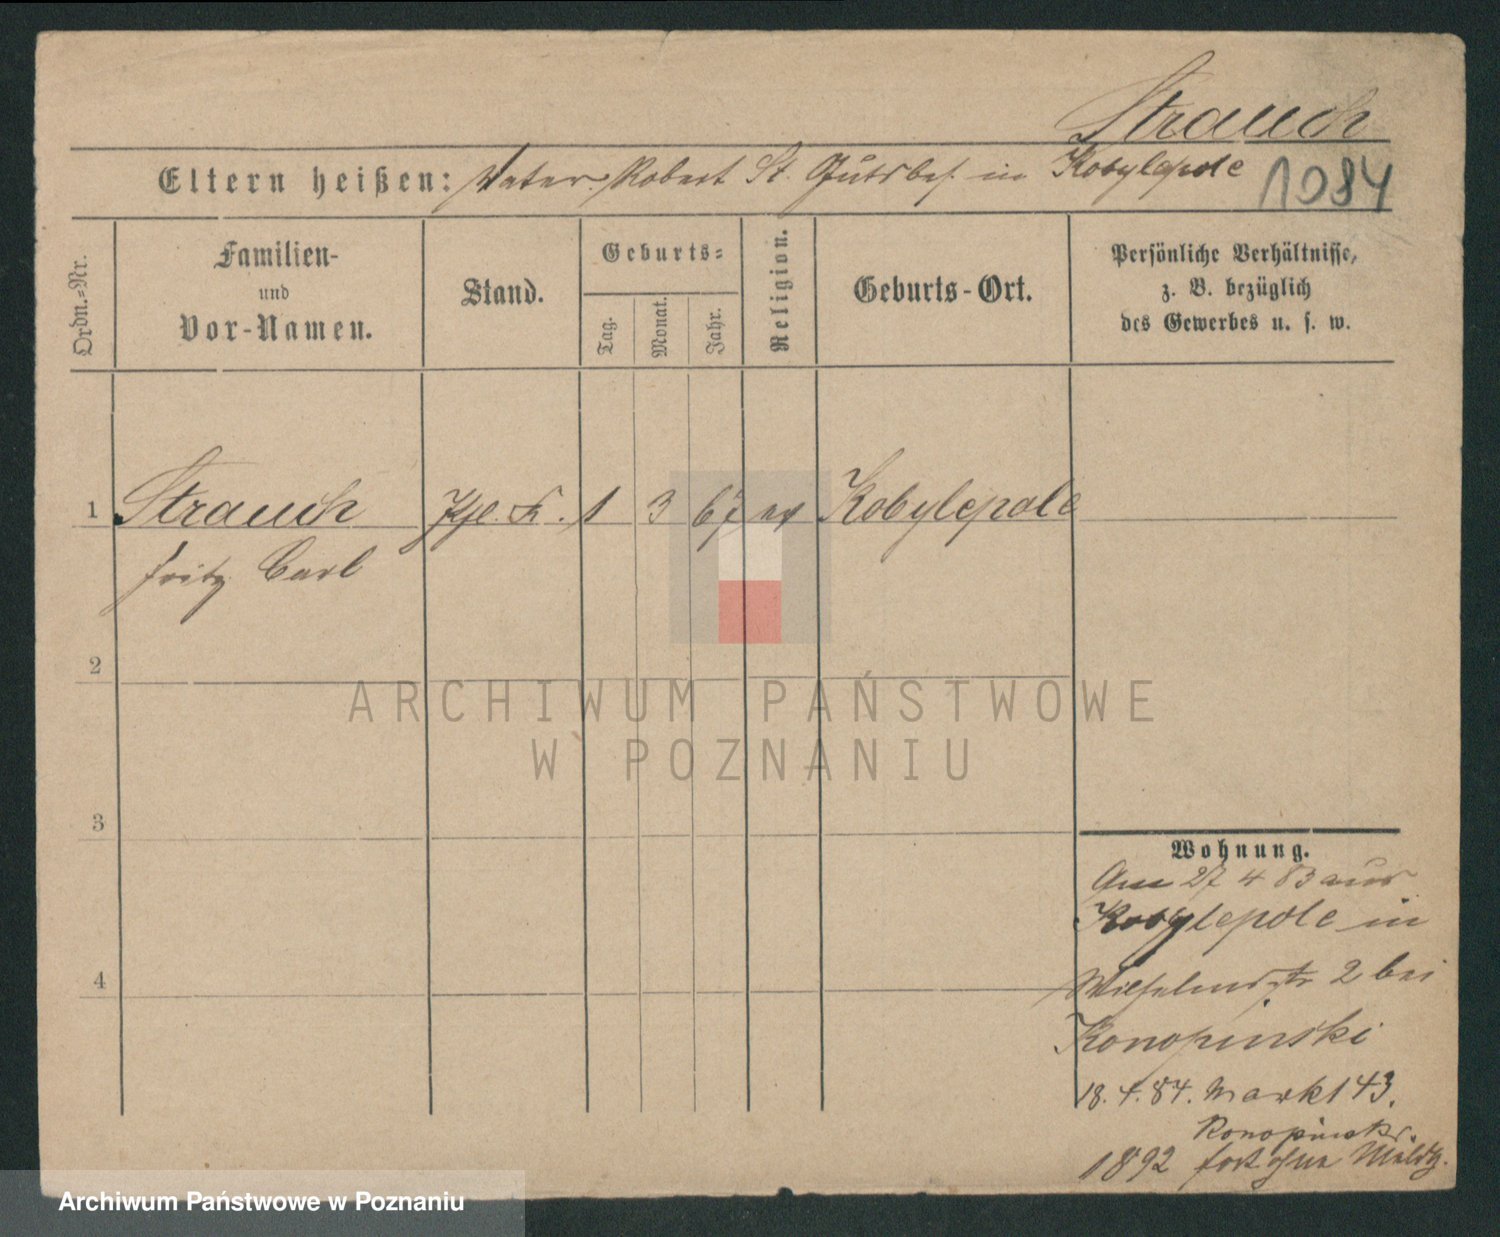 Strauch
Eltern heißen: Vater: Robert St. Gutsbes. in Kobylepole
1084
Ordn.=Nr.
Familien-
und
Vor-Namen.
Stand.
Geburts=
Tag.
Monat.
Jahr.
Religion.
Geburts-Ort.
Persönliche Verhältnisse,
z. B. bezüglich
des Gewerbes u. s. w.
1 Strauch 1 3 67 ev Kobylepole
Fritz Carl
2
3
4
Wohnung.
Am 27 4 83 aus
Kobylepole in
Wilhelmstr 2 bei
Konopinski
18. 4. 84. Markt 43.
Konopinski.
1892 fort ohne Meldg.
ARCHIWUM PAŃSTWOWE
W POZNANIU
Archiwum Państwowe w Poznaniu